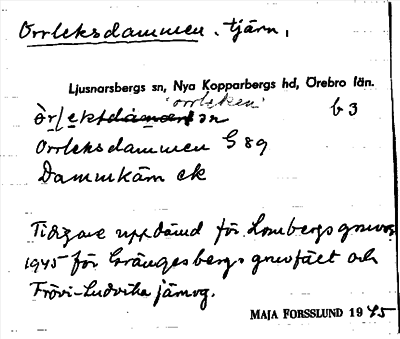 Orrleksdammen, tjärn,
Ljusnarsbergs sn, Nya Kopparbergs hd, Örebro län.
'orrleken' b 3
Orrleksdammen G 89
Dammkärn ek
Tidigare uppdämd för Lombergs gruvor
1945 för Grängesbergs gruvfält och
Frövi-Ludvika järnvg.
MAJA FORSSLUND 1945